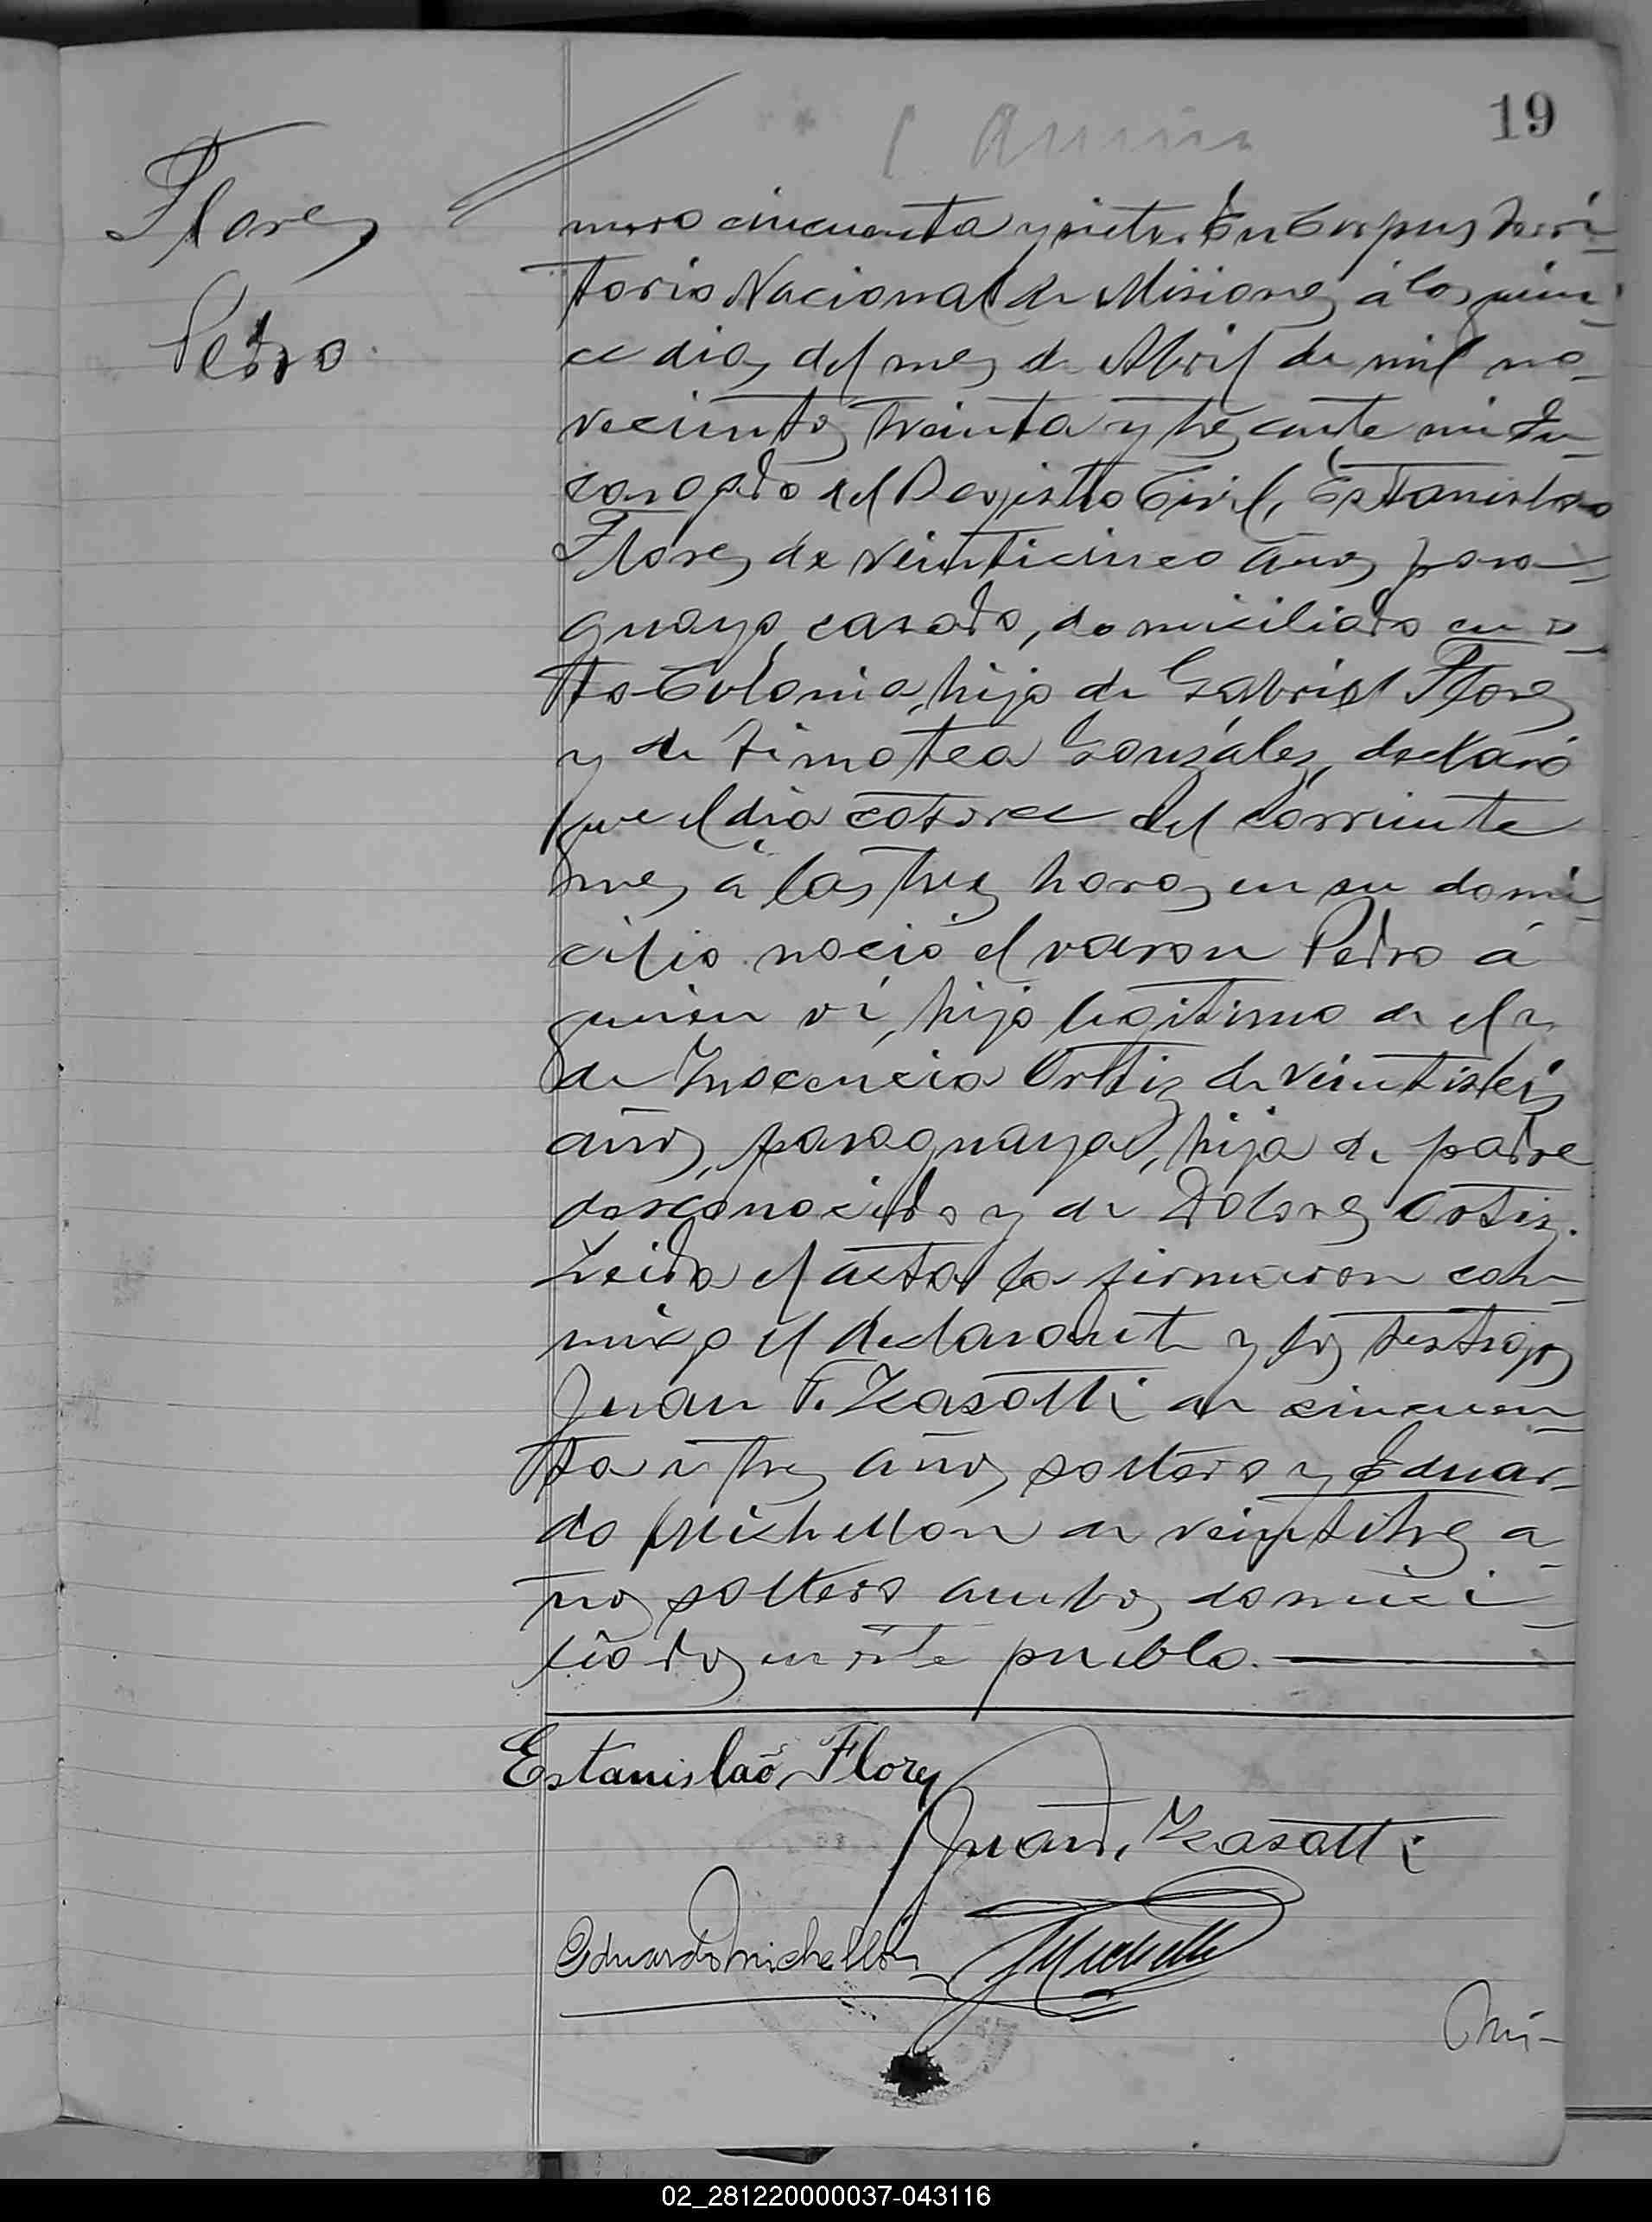 19
Flores
Pedro.
mero cincuenta y siete. En Corpus Terri-
torio Nacional de Misiones á los quin-
ce dias del mes de Abril de mil no-
vecientos treinta y tres ante mi En-
cargado del Registro Civil, Estanislao
Flores de veinticinco años para-
guayo, casado, domiciliado en es-
ta Colonia, hijo de Gabriel Flores
y de Timotea Gonzáles, declaró
que el dia catorce del corriente
mes á las tres horas en su domi-
cilio nació el varon Pedro á
quien ví, hijo legitimo de el y
de Inocencia Ortiz de veintiseis
años, paraguaya, hija de padre
desconocido y de Dolores Ortiz.
Leida el acta la firmaron con-
migo el declarante y los testigos
Juan F. Zeasotti de cincuen-
ta y tres años soltero y Eduar-
do Michellon de veintitres a-
ños soltero ambos domici-
liados en este pueblo.
Estanislao Flores
Juan F. Zeasotti
Eduardo Michellon
Nú-
02_281220000037-043116